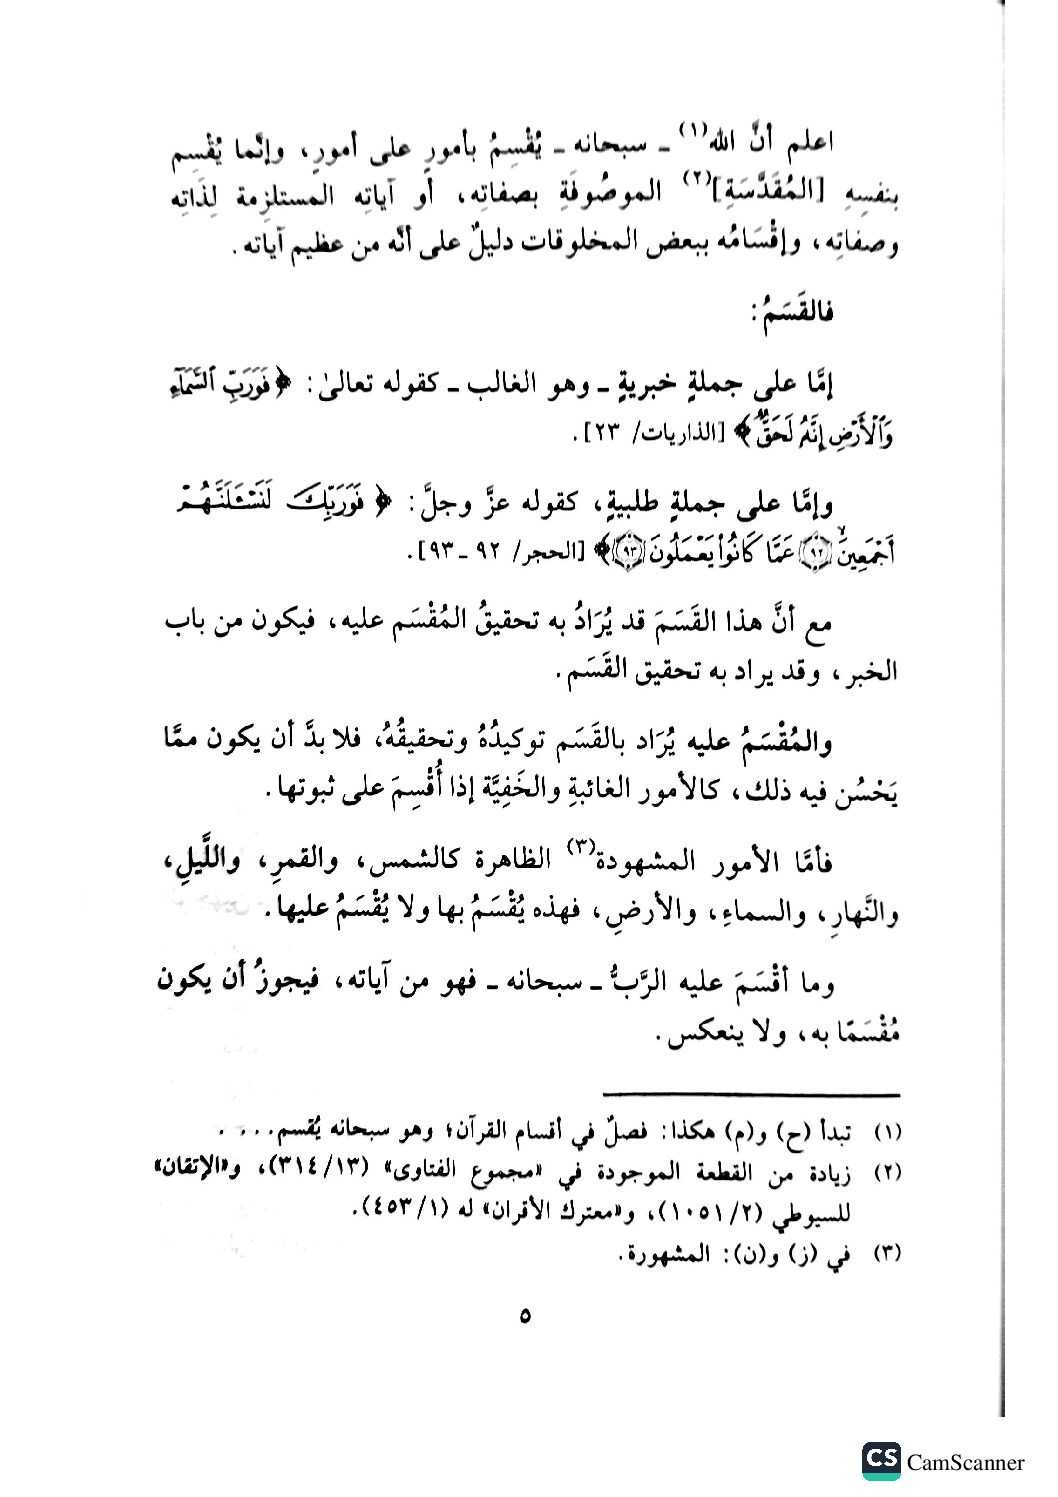 اعلم أنَّ الله(١) ـ سبحانه ـ يُقْسِمُ بأمورٍ على أمورٍ، وإنَّما يُقْسِم
بنفسِهِ [المُقَدَّسَةِ](٢) الموصُوفَةِ بصفاتِه، أو آياتِه المستلزِمة لِذَاتِه
وصفاتِه، وإقْسَامُه ببعض المخلوقات دليلٌ على أنَّه من عظيم آياته.
فالقَسَمُ:
إمَّا على جملةٍ خبريةٍ ـ وهو الغالب ـ كقوله تعالىٰ: ﴿فَوَرَبِّ ٱلسَّمَآءِ
وَٱلْأَرْضِ إِنَّهُۥ لَحَقٌّ﴾ [الذاريات/ ٢٣].
وإمَّا على جملةٍ طلبيةٍ، كقوله عزَّ وجلَّ: ﴿فَوَرَبِّكَ لَنَسْـَٔلَنَّهُمْ
أَجْمَعِينَ ۝٩٢ عَمَّا كَانُوا۟ يَعْمَلُونَ ۝٩٣﴾ [الحجر/ ٩٢ ـ ٩٣].
مع أنَّ هذا القَسَمَ قد يُرَادُ به تحقيقُ المُقْسَم عليه، فيكون من باب
الخبر، وقد يراد به تحقيق القَسَم.
والمُقْسَمُ عليه يُرَاد بالقَسَم توكيدُهُ وتحقيقُهُ، فلا بدَّ أن يكون ممَّا
يَحْسُن فيه ذلك، كالأمور الغائبةِ والخَفِيَّة إذا أُقْسِمَ على ثبوتها.
فأمَّا الأمور المشهودة(٣) الظاهرة كالشمس، والقمرِ، واللَّيلِ،
والنَّهارِ، والسماءِ، والأرضِ، فهذه يُقْسَمُ بها ولا يُقْسَمُ عليها.
وما أقْسَمَ عليه الرَّبُّ ـ سبحانه ـ فهو من آياته، فيجوزُ أن يكون
مُقْسَمًا به، ولا ينعكس.
(١) تبدأ (ح) و(م) هكذا: فصلٌ في أقسام القرآن؛ وهو سبحانه يُقسم....
(٢) زيادة من القطعة الموجودة في «مجموع الفتاوى» (٣١٤/١٣)، و«الإتقان»
للسيوطي (١٠٥١/٢)، و«معترك الأقران» له (٤٥٣/١).
(٣) في (ز) و(ن): المشهورة.
٥
CS CamScanner